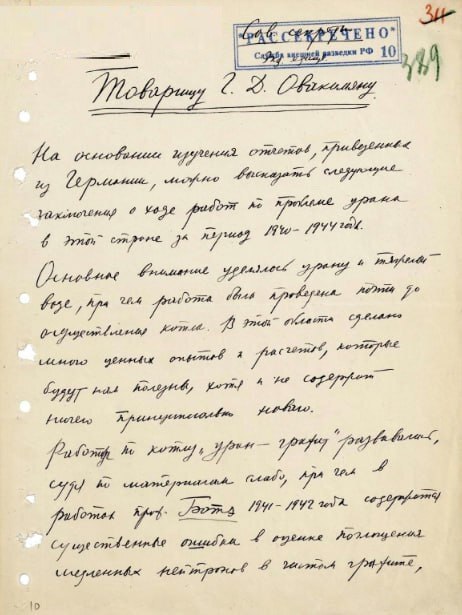 Сов. секретно
"РАССЕКРЕЧЕНО"
Служба внешней разведки РФ
10
34
389
Товарищу Г. Д. Овакимяну
На основании изучения отчетов, привезенных
из Германии, можно высказать следующие
заключения о ходе работ по проблеме урана
в этой стране за период 1940-1944 года.
Основное внимание уделялось урану и тяжелой
воде, при чем работа была проведена почти до
осуществления котла. В этой области сделано
много ценных опытов и расчетов, которые
будут нам полезны, хотя и не содержат
ничего принципиально нового.
Работы по котлу "уран-графит" развивались,
судя по материалам слабо, при чем в
работах проф. Ботэ 1941-1942 года содержатся
существенные ошибки в оценке поглощения
медленных нейтронов в чистом графите,
10